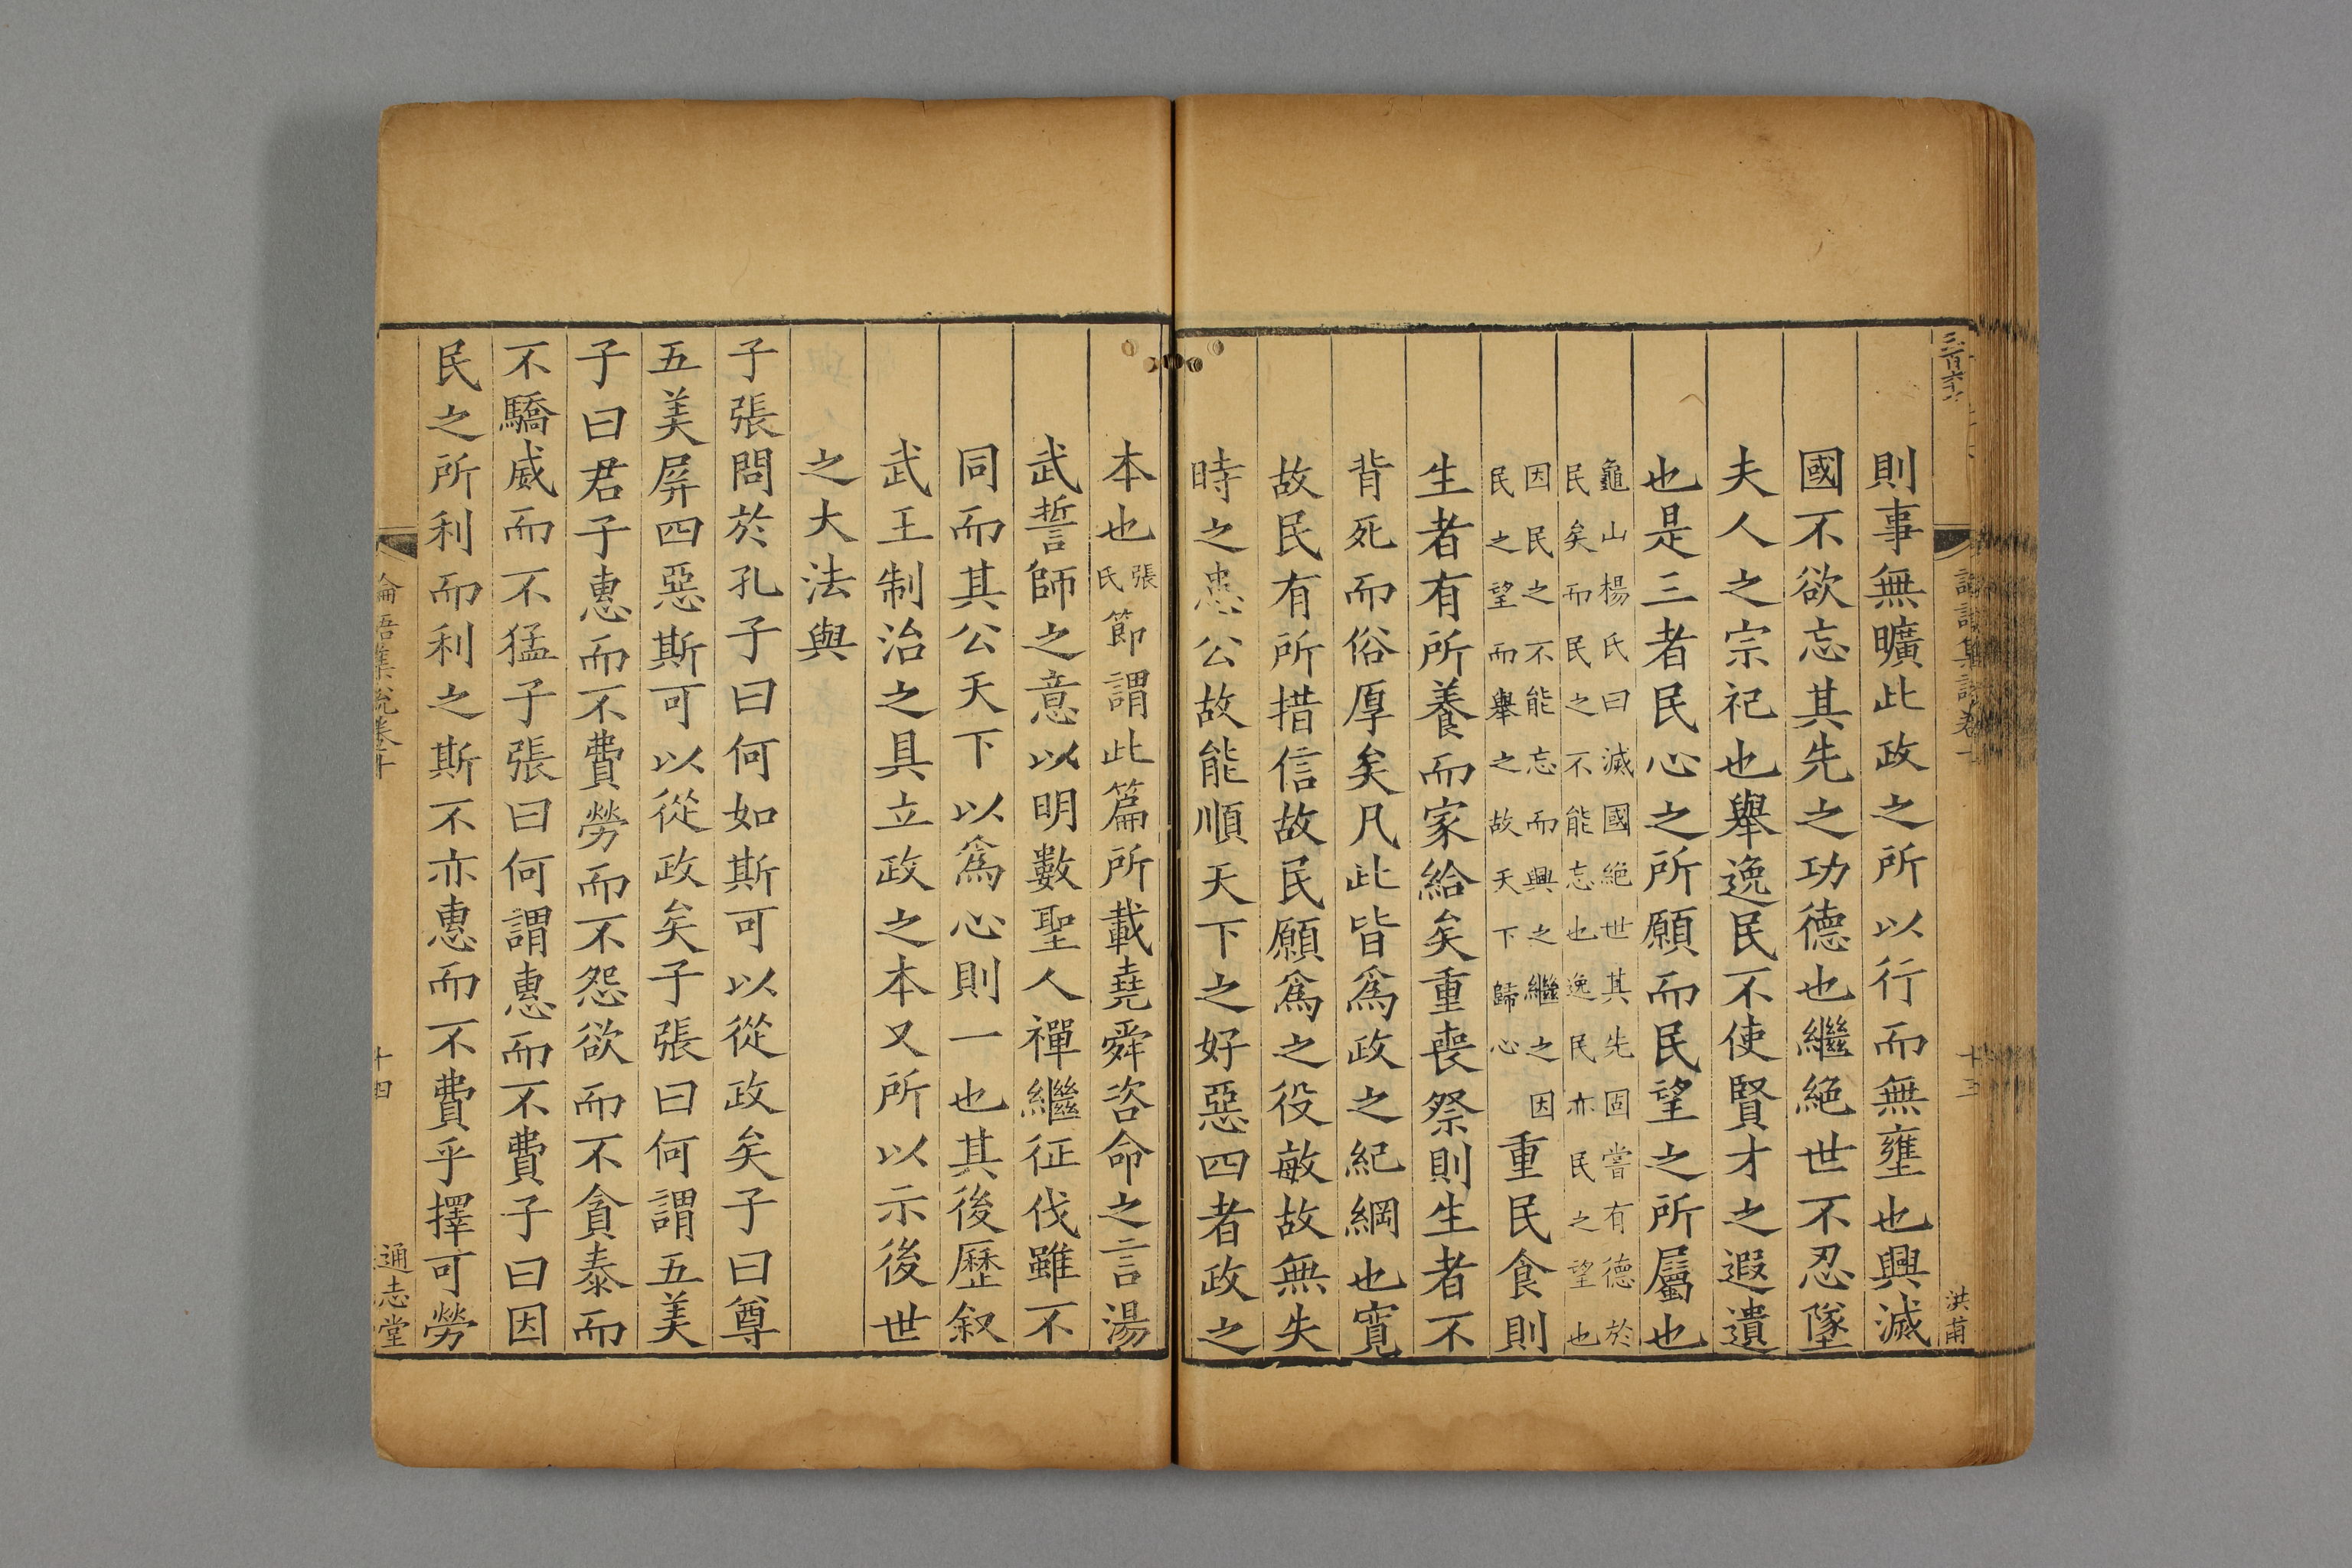 則事無曠此政之所以行而無壅也興滅
國不欲忘其先之功德也繼絕世不忍墜
夫人之宗祀也舉逸民不使賢才之遐遺
也是三者民心之所願而民望之所屬也
龜山楊氏曰滅國絕世其先固嘗有德於
民矣而民之不能忘也逸民亦民之望也
因民之不能忘而興之繼之因
民之望而舉之故天下歸心
重民食則
生者有所養而家給矣重喪祭則生者不
背死而俗厚矣凡此皆爲政之紀綱也寬
故民有所措信故民願爲之役敏故無失
時之患公故能順天下之好惡四者政之
洪甫
十三
本也
張
氏
節謂此篇所載堯舜咨命之言湯
武誓師之意以明數聖人禪繼征伐雖不
同而其公天下以爲心則一也其後歷叙
武王制治之具立政之本又所以示後世
之大法與
子張問於孔子曰何如斯可以從政矣子曰尊
五美屏四惡斯可以從政矣子張曰何謂五美
子曰君子惠而不費勞而不怨欲而不貪泰而
不驕威而不猛子張曰何謂惠而不費子曰因
民之所利而利之斯不亦惠而不費乎擇可勞
論語集說卷十
十四
通志堂